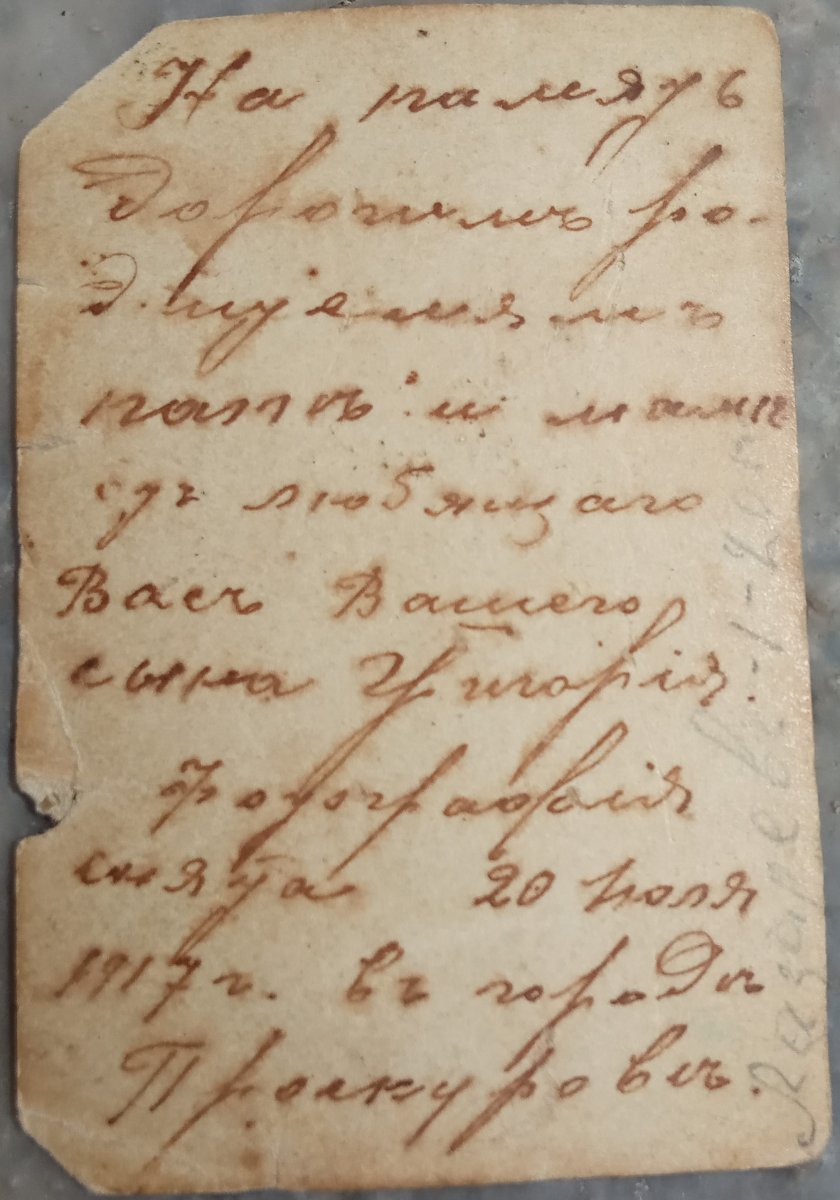 На память
Дорогимъ ро-
дителямъ
папѣ и мамѣ
отъ любящаго
Васъ Вашего
сына Григорія.
Фотографія
снята 20 Іюля
1917 г. въ городѣ
Проскуровѣ.